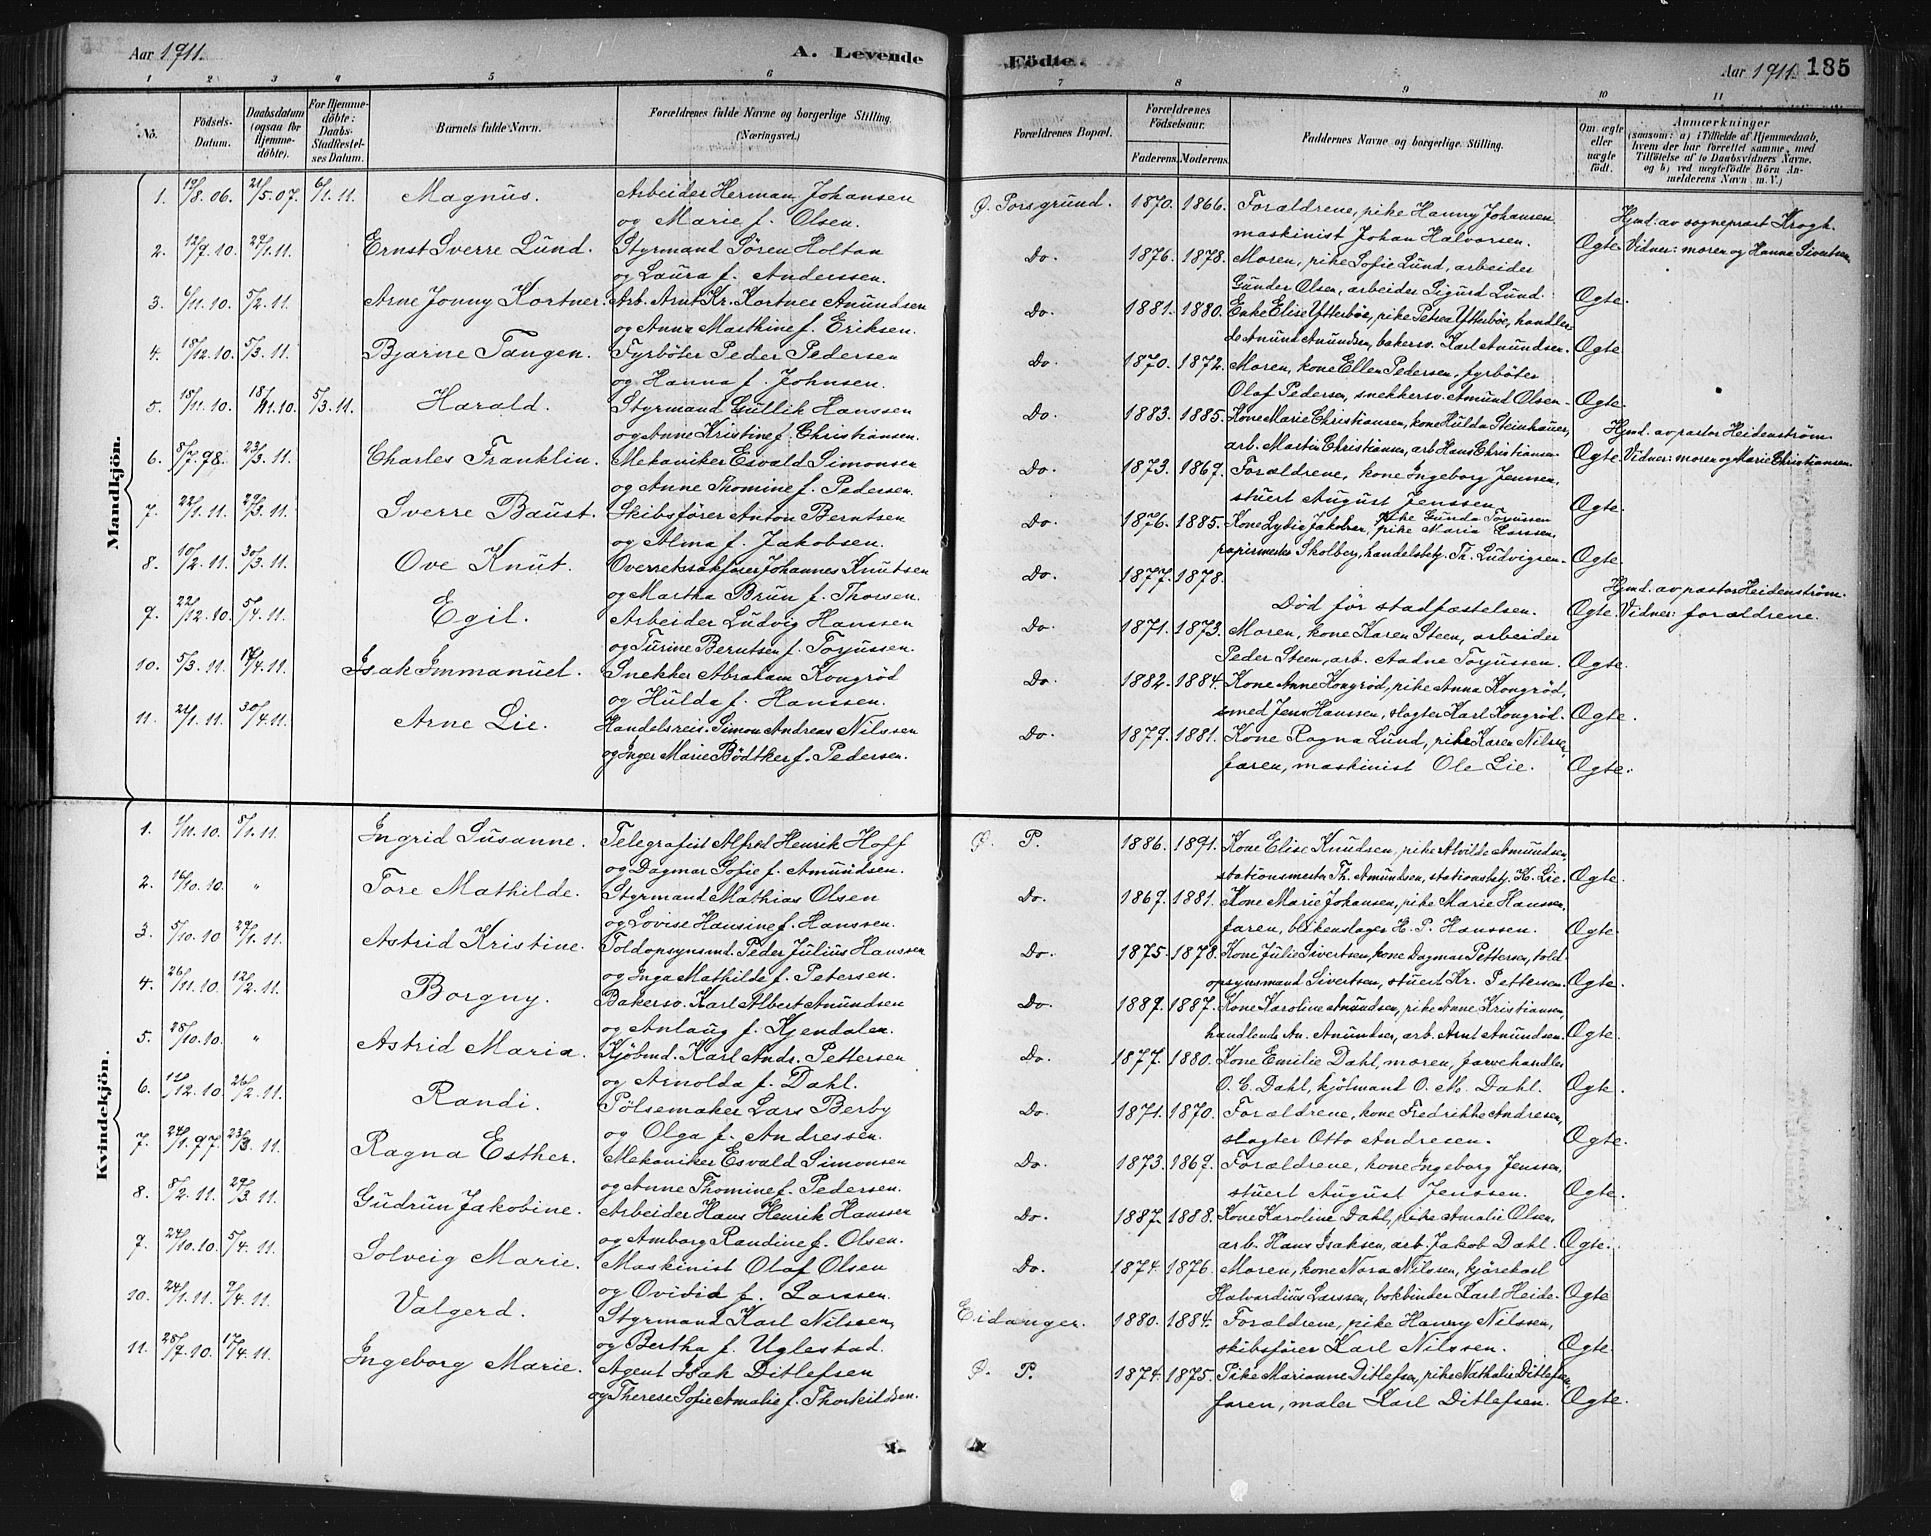 Aar 1911. A. Levende Födte. Aar 1911. 185
1 2 3 4 5 6 7 8 9 10 11
No. Födsels-Datum. Daabsdatum (ogsaa for Hjemmedöbte). For Hjemmedöbte: Daabs-Stadfæstelses Datum. Barnets fulde Navn. Forældrenes fulde Navne og borgerlige Stilling. (Næringsvei.) Forældrenes Bopæl. Forældrenes Födselsaar. Faderens. Moderens. Faddernes Navne og borgerlige Stilling. Om ægte eller uægte födt. Anmærkninger (saasom: a) i Tilfælde af Hjemmedaab, hvem der har forrettet samme, med Tilföielse af to Daabsvidners Navne, og b) ved uægtefödte Börn Anmelderens Navn m. V.)
Mandkjön.
1. 19/8.06. 21/5.07. 6/1.11. Magnus. Arbeider Herman Johansen Ø. Porsgrund. 1870. 1866. Forældrene, pike Hanny Johansen Hjmd. av sogneprest Krogh.
og Marie f. Olsen. maskinist Johan Halvorsen. Ægte. Vidner: moren og Hanna Sivertsen
2. 12/9.10. 29/1.11. Ernst Sverre Lund. Styrmand Søren Holtan Do. 1876. 1878. Moren, pike Sofie Lund, arbeider
og Laura f. Anderssen. Gunder Olsen, arbeider Sigurd Lund. Ægte.
3. 6/11.10. 5/2.11. Arne Jonny Kortner. Arb. Arnt Kr. Kortner Amundsen Do. 1881. 1880. Enke Elise Ytterbøe, pike Petrea Ytterbøe, handlen-
og Anna Marthine f. Eriksen. de Anund Amundsen, bakersv. Karl Amundsen. Ægte.
4. 18/12.10. 5/3.11. Bjarne Tangen. Fyrbøter Peder Pedersen Do. 1870. 1872. Moren, kone Ellen Pedersen, fyrbøter
og Hanna f. Johnsen. Olaf Pedersen, snekkersv. Amund Olsen. Ægte.
5. 15/11.10. 18/11.10. 5/3.11. Harald. Styrmand Gullik Hanssen Do. 1883. 1885. Kone Marie Christiansen, kone Hulda Steinhauer, Hjmd. av pastor Heidenstrøm.
og Anne Kristine f. Christiansen. arb. Martin Christiansen, arb. Hans Christiansen. Ægte. Vidner: moren og Marie Christiansen.
6. 8/7.98. 23/3.11. Charles Franklin. Mekaniker Esvald Simonsen Do. 1873. 1869. Forældrene, kone Ingeborg Jenssen,
og Anne Thomine f. Pedersen. stuert August Jenssen. Ægte.
7. 22/1.11. 29/3.11. Sverre Baust. Skibsfører Anton Berntsen Do. 1876. 1885. Kone Lydig Jakobsen, pike Gunda Torjussen pike Maria Larssen,
og Alma f. Jakobsen. papirmester Skolberg, handelsbetj. Th. Ludvigsen. Ægte.
8. 10/2.11. 30/3.11. Ove Knut. Overretssakfører Johannes Knutsen Do. 1877. 1878. Hjmd. av pastor Heidenstrøm.
og Martha Brun f. Thorsen. Død før stadfæstelsen. Ægte. Vidner: forældrene.
9. 22/12.10. 5/4.11. Egil. Arbeider Ludvig Hanssen Do. 1871. 1873. Moren, kone Karen Steen, arbeider
og Turine Berntsen f. Torjussen. Peder Steen, arb. Aadne Torjussen. Ægte.
10. 5/3.11. 17/4.11. Isak Immanuel. Snekker Abraham Kongrød Do. 1882. 1884. Kone Anne Kongrød, pike Anna Kongrød,
og Hulda f. Hanssen. smed Jens Hanssen, slagter Karl Kongrød. Ægte.
11. 21/1.11. 30/4.11. Arne Lie. Handelsreis. Simon Andreas Nilssen Do. 1879. 1881. Kone Ragna Lund, pike Karen Nilssen,
og Inger Marie Bødtker f. Pedersen. faren, maskinist Ole Lie. Ægte.
Kvindekjön.
1. 1/11.10. 8/1.11. Ingrid Susanne. Telegrafist Alfred Henrik Hoff Ø. P. 1886. 1891. Kone Elise Knudsen, pike Alvilde Amundsen,
og Dagmar Sofie f. Amundsen. stationsmester Th. Amundsen, stationsbetj. H. Lie. Ægte.
2. 16/10.10. " Tore Mathilde. Styrmand Mathias Olsen Do. 1869. 1881. Kone Marie Johansen, pike Marie Hanssen,
og Lovise Hansine f. Hanssen. faren, blikenslager H. P. Hanssen. Ægte.
3. 5/10.10 29/1.11. Astrid Kristine. Toldopsynsmd. Peder Julius Hanssen Do. 1875. 1878. Kone Julie Sivertsen, kone Dagmar Pettersen, told-
og Inga Mathilde f. Petersen. opsynsmand Sivertsen, stuert Kr. Pettersen. Ægte.
4. 26/11.10. 12/2.11. Borgny. Bakersv. Karl Albert Amundsen Do. 1887. 1887. Kone Karoline Amundsen, pike Anne Kristiansen,
og Anlaug f. Kjendalen. handlende An. Amundsen, arb. Arnt Amundsen. Ægte.
5. 28/10.10. " Astrid Maria. Kjøbmd. Karl Andr. Pettersen Do. 1877. 1880. Kone Emilie Dahl, moren, farvehandler
og Arnolda f. Dahl. O. C. Dahl, kjøbmand O. M. Dahl. Ægte.
6. 12/12.10. 26/2.11. Randi. Pølsemaker Lars Berby Do. 1871. 1870. Forældrene, kone Fredrikke Andresen,
og Olga f. Andressen. slagter Otto Andresen. Ægte.
7. 24/1.97. 23/3.11. Ragna Esther. Mekaniker Esvald Simonsen Do. 1873. 1869. Forældrene, kone Ingeborg Jenssen,
og Anne Thomine f. Pedersen. stuert August Jenssen. Ægte.
8. 8/2.11. 29/3.11. Gudrun Jakobine. Arbeider Hans Henrik Hanssen Do. 1887. 1888. Kone Karoline Dahl, pike Amalie Olsen,
og Amborg Randine f. Olsen. arb. Hans Isaksen, arb. Jakob Dahl. Ægte.
9. 24/10.10. 5/4.11. Solveig Marie. Maskinist Olaf Olsen Do. 1874. 1876. Moren, kone Nora Nilssen, kjørekarl
og Ovidia f. Larssen. Halvardius Larssen, bokbinder Karl Heide. Ægte
10. 24/1.11. 9/4.11. Valgerd. Styrmand Karl Nilssen, Eidanger. 1880. 1884. Forældrene, pike Hanny Nilssen,
og Bertha f. Uglestad. skibsfører Karl Nilssen. Ægte.
11. 28/7.10. 17/4.11. Ingeborg Marie. Agent Isak Ditlefsen Ø. P. 1874. 1875. Pike Marianne Ditlefsen, pike Nathalie Ditlefsen,
og Therese Sofie Amalie f. Thorkildsen. faren, maler Karl Ditlefsen. Ægte.